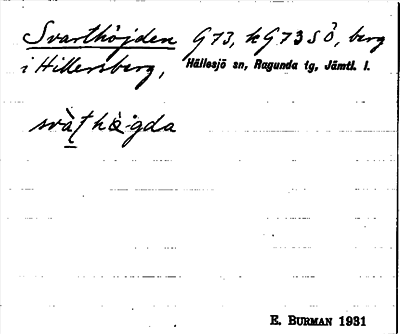 Svarthöjden G73, kG73SÖ, berg
i Hillersberg, Hällesjö sn, Ragunda tg, Jämtl. l.
svàt hö̀gda
E. BURMAN 1931